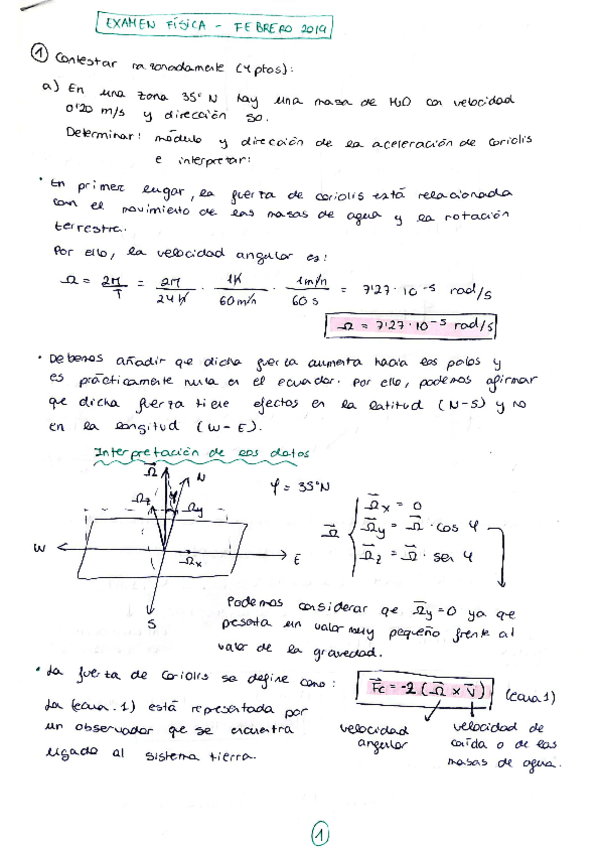 EXAMEN FÍSICA - FEBRERO 2019
① Contestar razonadamente (4 ptos):
a) En una zona 35° N hay una masa de H2O con velocidad
0'20 m/s y dirección SO.
Determinar: módulo y dirección de la aceleración de coriolis
e interpretar:
• En primer lugar, la fuerza de coriolis está relacionada
con el movimiento de las masas de agua y la rotación
terrestre.
Por ello, la velocidad angular es:
Ω = 2π/T = 2π/24h · 1h/60min · 1min/60s = 7'27·10⁻⁵ rad/s
Ω = 7'27·10⁻⁵ rad/s
• Debemos añadir que dicha fuerza aumenta hacia los polos y
es prácticamente nula en el ecuador. Por ello, podemos afirmar
que dicha fuerza tiene efectos en la latitud (N-S) y no
en la longitud (W-E).
Interpretación de los datos
Ω N
Ωz φ Ωy
W E
Ωx
S
φ = 35°N
Ω
Ωx = 0
Ωy = Ω · cos φ
Ωz = Ω · sen φ
Podemos considerar que Ωy=0 ya que
presenta un valor muy pequeño frente al
valor de la gravedad.
• La fuerza de coriolis se define como: Fc = -2 (Ω x V) (ecua 1)
La (ecua. 1) está representada por
un observador que se encuentra
ligado al sistema tierra.
velocidad
angular
velocidad de
caída o de las
masas de agua.
①